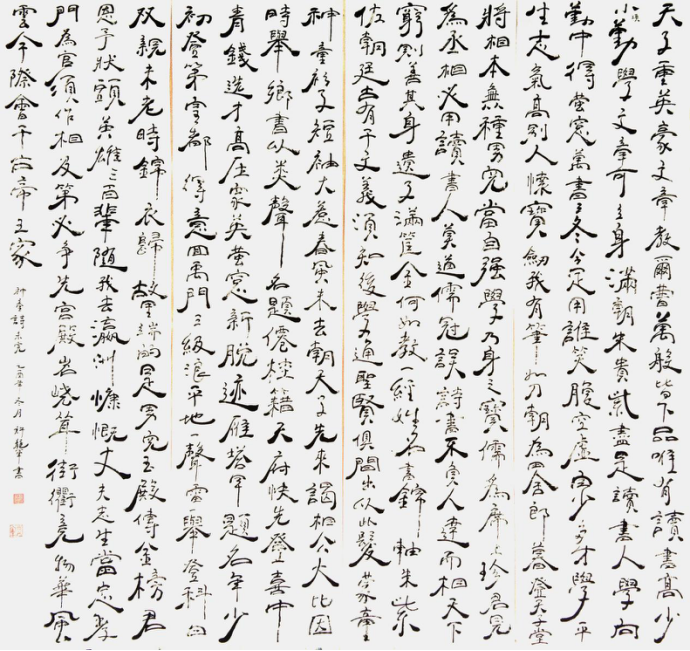 天子重英豪文章教爾曹萬般皆下品唯有讀書高少
小須勤學文章可立身滿朝朱貴紫盡是讀書人學向
勤中得螢窓萬書三冬今足用誰笑腹空虛自少多才學平
生志氣高別人懷寶劒我有筆如刀朝為田舍郎暮登天子堂
將相本無種男兒當自强學乃身之寶儒為席上珍君見
為丞相必用讀書人莫道儒冠誤詩書不負人達而相天下
窮則善其身遺子滿籯金何如教一經姓名書錦軸朱紫
佐朝廷古有千文義須知後學通聖賢俱間出以此發蒙童
神童衫子短袖大惹春風未去朝天子先來謁相公大比因
時舉鄉書以類聲名題僊桂籍天府快先登喜中
青錢選才高压眾英螢窓新脫迹雁塔早題名年少
初登第皇都得意回禹門三級浪平地一聲雷一舉登科日
双親未老時錦衣歸故里端的是男兒玉殿傳金榜君
恩予狀頭英雄三百輩隨我去瀛洲慷慨丈夫志生當忠孝
門為官須作相及第必爭先宮殿岧嶢聳街衢竞物華風
雲今際會千古帝王家
神童詩未完 冬月 書